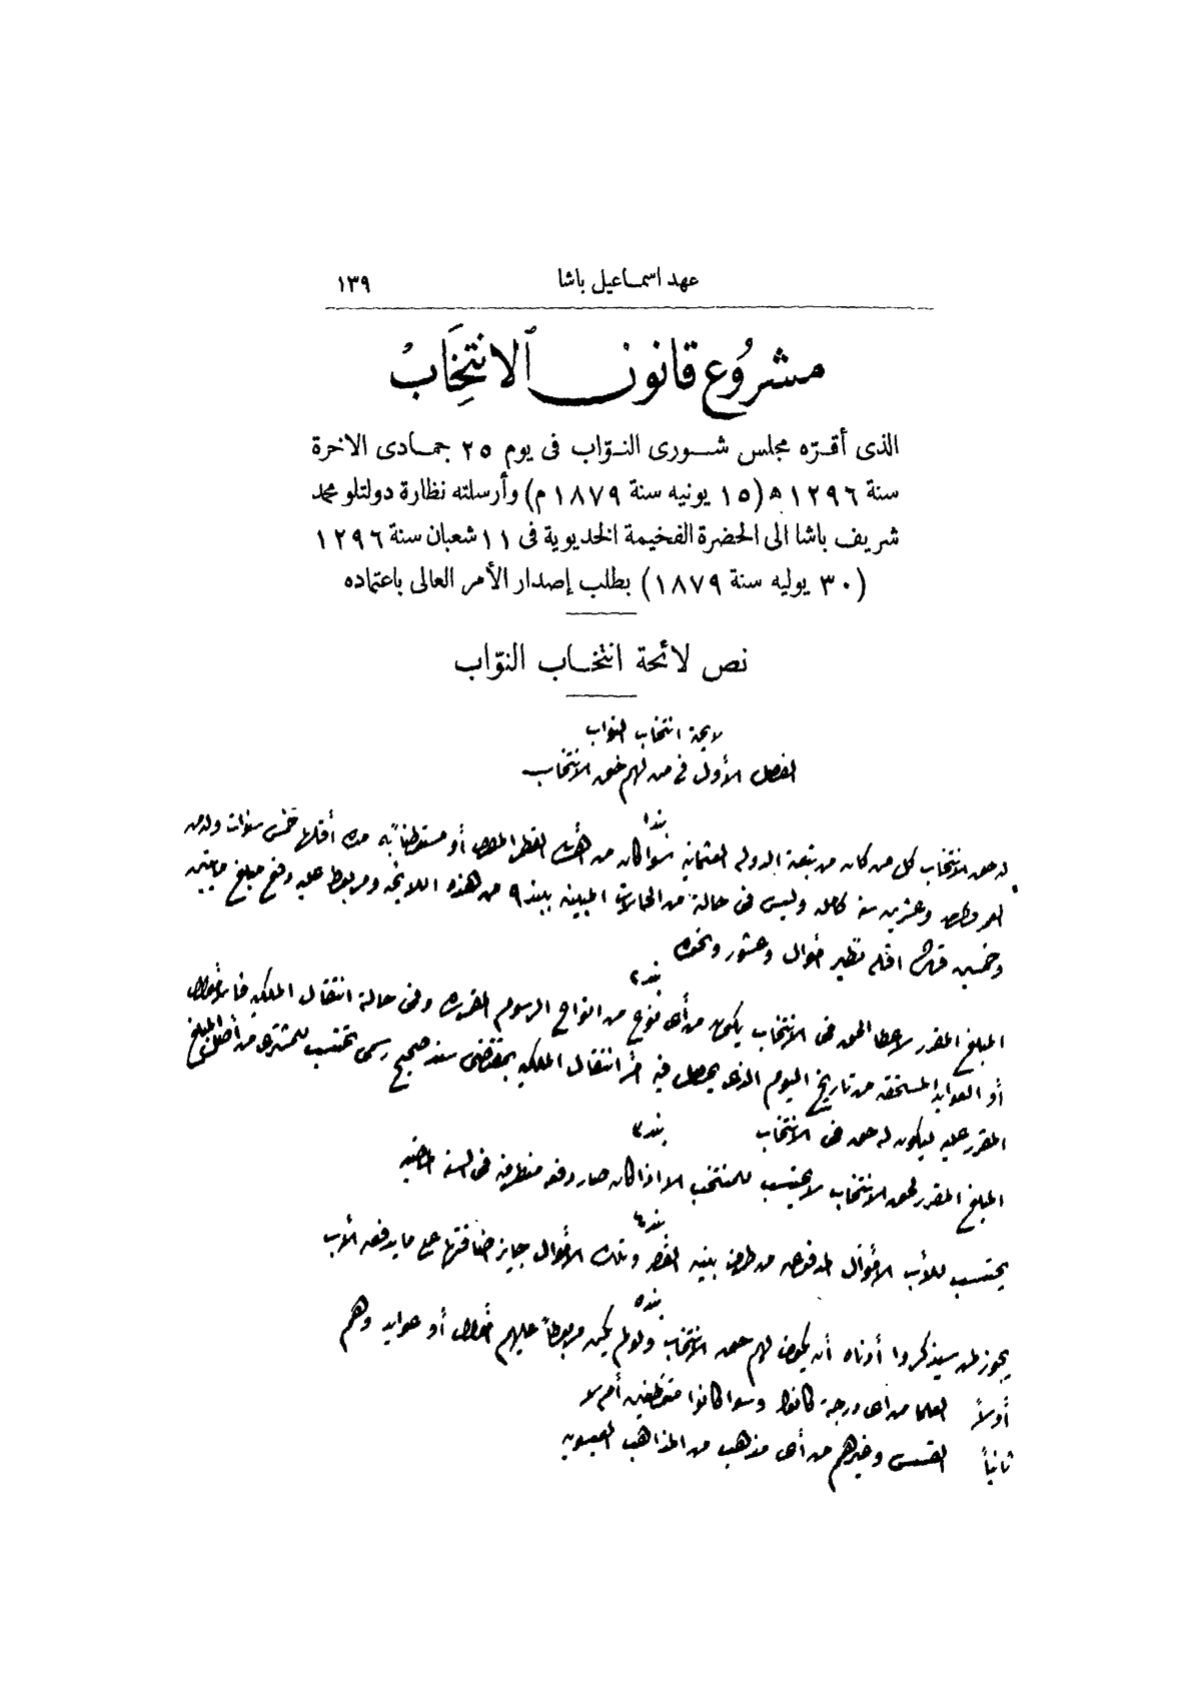 عهد اسماعيل باشا ١٣٩
مشروع قانون الانتخاب
الذى أقرّه مجلس شورى النوّاب فى يوم ٢٥ جمادى الاخرة
سنة ١٢٩٦ ھ (١٥ يونيه سنة ١٨٧٩ م) وأرسلته نظارة دولتلو محمد
شريف باشا الى الحضرة الفخيمة الخديوية فى ١١ شعبان سنة ١٢٩٦
(٣٠ يوليه سنة ١٨٧٩) بطلب إصدار الأمر العالى باعتماده
نص لائحة انتخاب النوّاب
لايحة انتخاب النواب
الفصل الأول فى من لهم حق الانتخاب
بند ١
له حق الانتخاب كل من كان من تبعة الدوله العثمانيه سوا كان من القطر المصرى أو مستوطنا به مدة أقلها خمس سنوات وله من
العمر وعشرين سنه كامله وليس فى حالة من الحالات المبينه ببند ٩ من هذه اللائحه ومربوط عليه دفع مبلغ مايتين
وخمسين قرش اقله نظير أموال وعشور ونحوه
بند ٢
المبلغ المقرر لاعطا الحق فى الانتخاب يكون من أى نوع من انواع الرسوم المقرره وفى حالة انتقال الملكيه فالأموال
أو العوايد المستحقه من تاريخ اليوم الذى يحصل فيه انتقال الملكيه بمقتضى سند صحيح رسمى تحتسب للمشترى من أصل المبلغ
المقرر عليه ليكون له حق فى الانتخاب
بند ٣
المبلغ المقرر لحق الانتخاب لا يحتسب للمنتخب الا اذا كان صار دفعه من طرفه فى السنه الماضيه
بند ٤
يحتسب للأب الأموال المدفوعه من طرف بنيه القصر وتلك الأموال جايز اضافتها على ما يدفعه الأب
بند ٥
يجوز لمن سيذكروا أدناه أن يكون لهم حق الانتخاب ولو لم يكن مربوطاً عليهم أموال أو عوايد وهم
أولاً العلما من اى درجة كانوا وسوا كانوا موظفين أم لا
ثانياً القسس وغيرهم من أى مذهب من المذاهب العيسويه